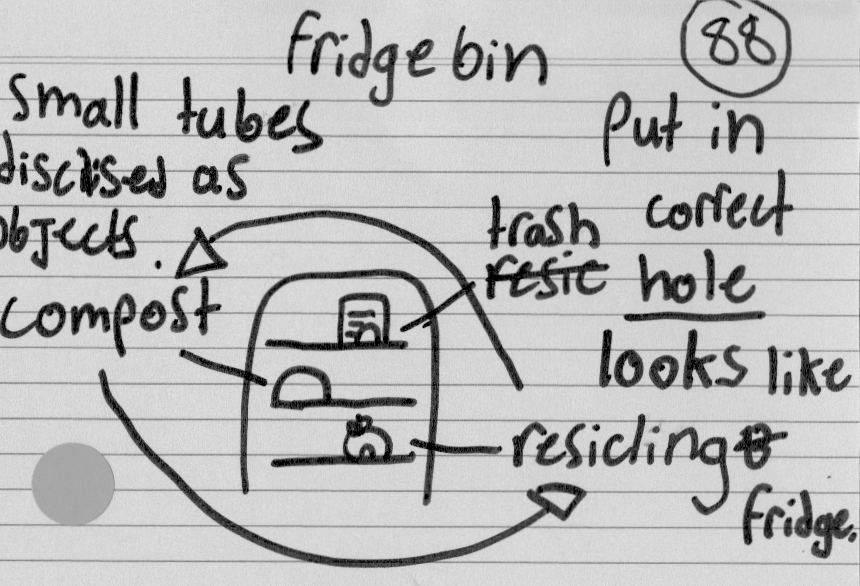 fridge bin
88
small tubes
disclised as
objects.
compost
Put in
correct
hole
looks like
fridge.
trash
resic
resicling